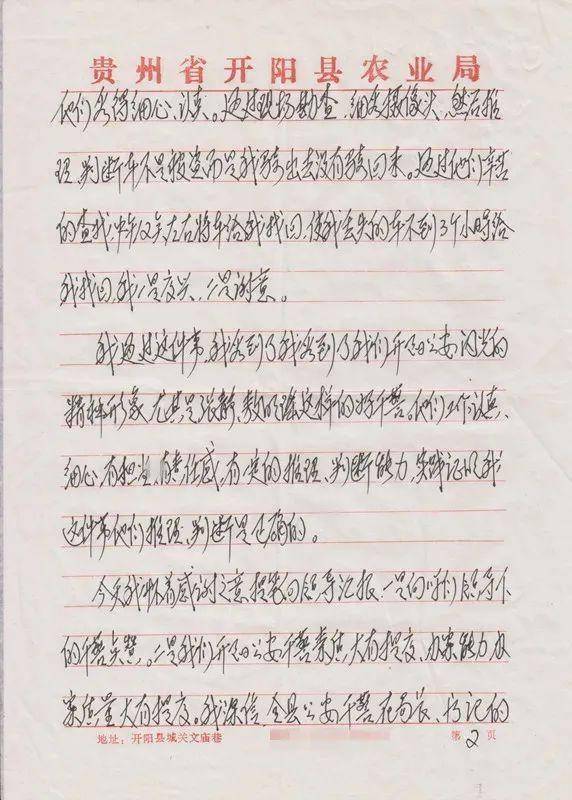 贵州省开阳县农业局
他们看得细心、认真。通过现场勘查、细看摄像头,然后推
理、判断车不是被盗而是我骑出去没有骑回来。通过他们辛苦
的查找,中午 左右将车给我找回,使我丢失的车不到3个小时给
我找回,我一是高兴、二是谢意。
我通过这件事,我看到了我看到了我们开阳公安闪光的
精神形象,尤其是 这样的好干警。他们工作认真、
细心、有担当、有责任感,有一定的推理、判断能力,实践证明我
这件事他们推理、判断是正确的。
今天我怀着感谢之意提笔向领导汇报:一是向你们领导下
的干警点赞。二是我们开阳公安干警素质大有提高,办案能力办
案质量大有提高。我深信,全县公安干警在局长、书记的
地址:开阳县城关文庙巷
第2页